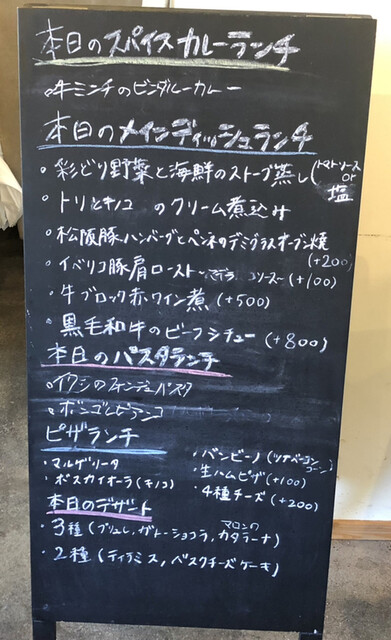 本日のスパイスカレーランチ
・牛ミンチのビンダルーカレー
本日のメインディッシュランチ
・彩どり野菜と海鮮のストーブ蒸し(トマトソース or 塩
・トリとキノコのクリーム煮込み
・松阪豚ハンバーグとペンネのデミグラスオーブン焼 (+200)
・イベリコ豚肩ロースト〜マデラソース〜(+100)
・牛ブロック赤ワイン煮 (+500)
・黒毛和牛のビーフシチュー (+800)
本日のパスタランチ
・イワシの
・ボンゴレビアンコ
ピザランチ
・マルゲリータ
・ボスカイオーラ(キノコ)
・バンビーノ(ツナベーコンコーン)
・生ハムピザ(+100)
・4種チーズ (+200)
本日のデザート
・3種(ブリュレ, ガトーショコラ, マロンのカタラーナ)
・2種(ティラミス, バスクチーズケーキ)